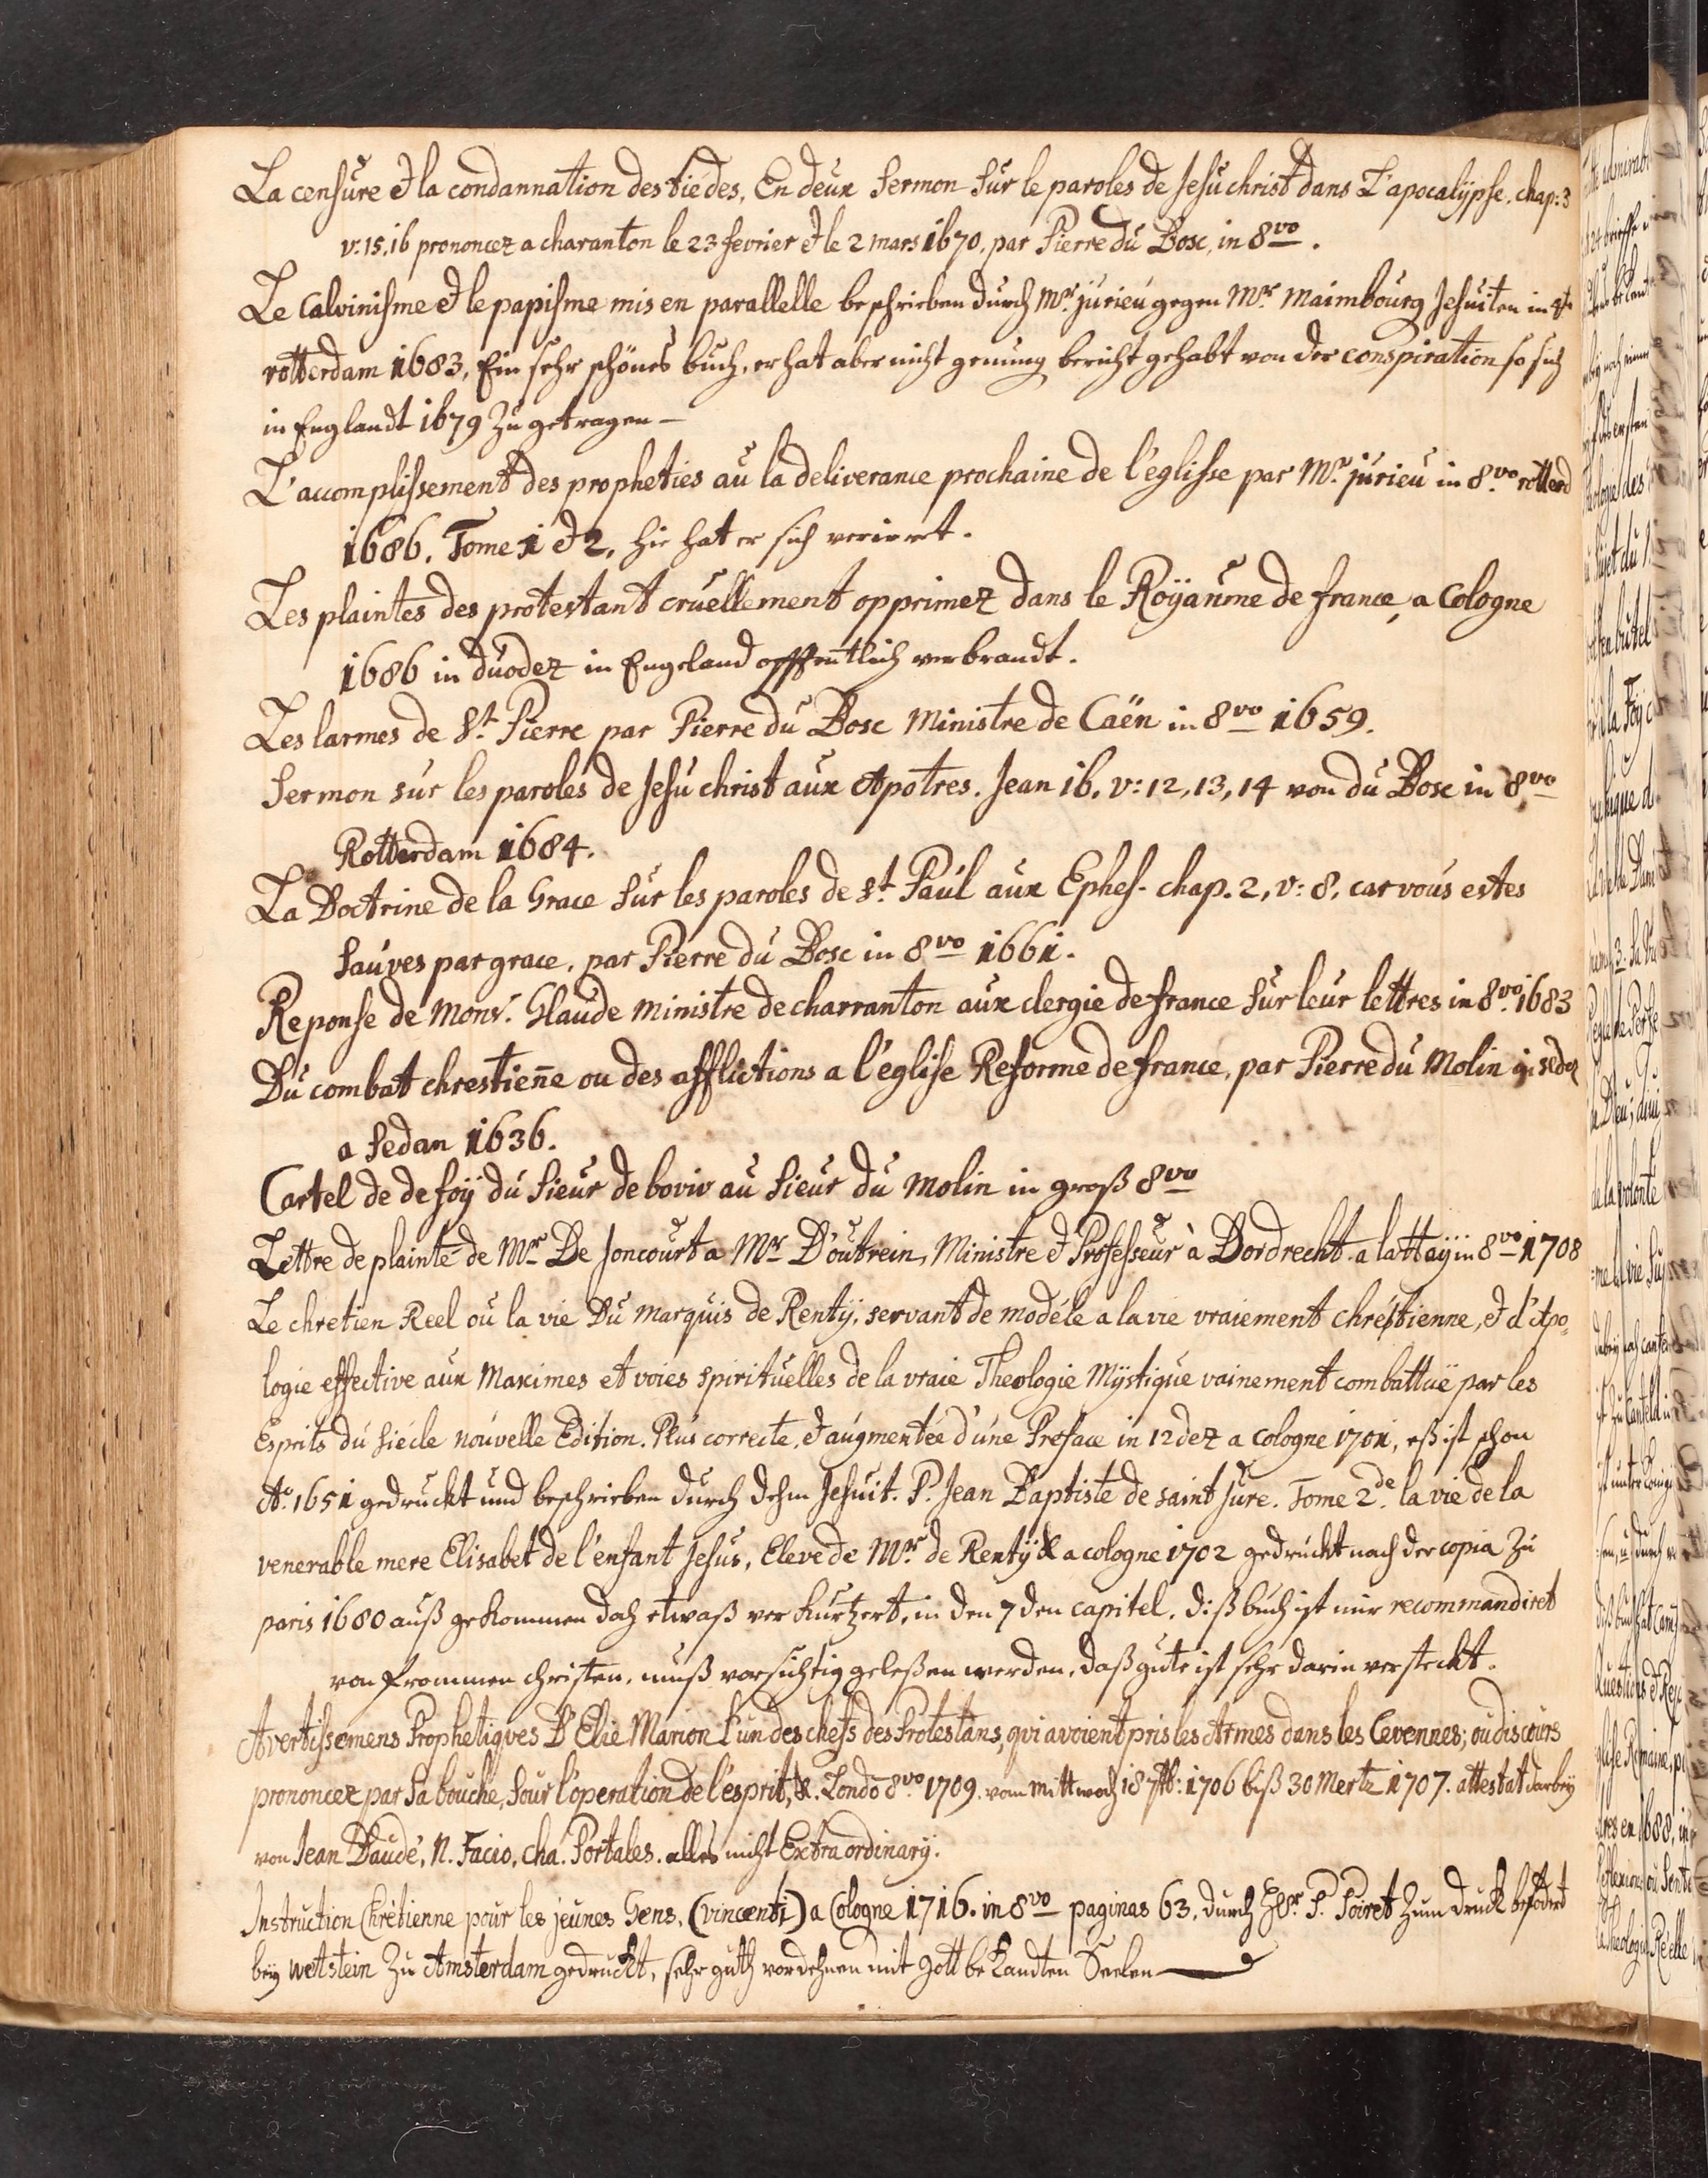 La censure et la condannation des tiédes, En deux Sermon sur le paroles de Jesu christ dans L'apocalÿpse. chap: 3
v: 15. 16 prononcez a charanton le 23 fevrier et le 2 mars 1670, par Pierre du Bosc, in 8vo.
Le Calvinisme et le papisme mis en parallelle beschrieben durch Mr. jurieu gegen Mr. Maimbourg Jesuiten in 4to
rotterdam 1683, Ein sehr schönes buch, er hat aber nicht genung bericht gehabt von der conspiration so sich
in Englandt 1679 zu getragen –
L'accomplissement des propheties au la deliverance prochaine de l'eglisse par Mr. jurieu in 8.vo rotterd
1686. Tome 1 et 2, hie hat er sich verirret.
Les plaintes des protestant cruellement opprimez dans le Roÿaume de france, a Cologne
1686 in duodez in Engeland offentlich verbrandt.
Les larmes de St. Pierre par Pierre du Bosc Ministre de Caën in 8vo 1659.
Sermon sur les paroles de Jesu christ aux Apotres. Jean 16. v: 12, 13, 14 von du Bosc in 8vo
Rotterdam 1684.
La Doctrine de la Grace sur les paroles de St. Paul aux Ephes. chap. 2, v: 8. car vous estes
sauves par grace, par Pierre du Bosc in 8vo 1661.
Reponse de Monsr. Glaude Ministre de charranton aux clergie de france sur leur lettres in 8vo. 1683
Du combat chrestiene ou des afflictions a l'eglise Reforme de france, par Pierre du Molin
a Sedan 1636.
Cartel de de foÿ du Sieur de boviv au Sieur du Molin in groß 8vo
Lettre de plainte de Mr. De Joncourt a Mr. D'outrein, Ministre et Professeur à Dordrecht a la Haÿ in 8vo 1708
Le chretien Reel ou la vie Du Marquis de Rentÿ, servant de modéle a la vie vraiement chréstienne, et d'Apo=
logie effective aux Maximes et voies spirituelles de la vraie Theologie Mÿstique vainement combattuë par les
Esprits du siécle nouvelle Edition. Plus correcte, et augmentée d'une Preface in 12dez a Cologne 1701, eß ist schon
Ao. 1651 gedruckt und beschrieben durch dehm Jesuit. P. Jean Baptiste de saint Jure. Tome 2de. la vie de la
venerable mere Elisabet de l'enfant Jesus, Eleve de Mr. de Rentÿ & a cologne 1702 gedruckt nach der copia zu
paris 1680 auß gekommen doch etwaß verkurtzert, in den 7 den capitel. diß buch ist mir recommandiret
von frommen christen, muß vorsichtig geleßen werden, daß gute ist sehr darin versteckt.
Avertissemens Prophetiques D'Elie Marion l'un des chefs des Protestans, qui avoient pris les Armes dans les Cevennes; ou discours
prononcez par sa bouche, sour l'operation de l'esprit, &. Londo 8vo. 1709. vom Mittwoch 18 7tb: 1706 biß 30 Mertz 1707. attestat darbeÿ
von Jean Daudé, N. Facio, cha. Portales. alles nicht Extraordinarÿ.
Instruction Chrétienne pour les jeunes Gens, (vincenti) a Cologne 1716. in 8vo paginas 63, durch Hr. P. Poiret zum druck befödert
beÿ Wettstein zu Amsterdam gedruckt, sehr guth vor dehnen mit Gott bekandten Seelen